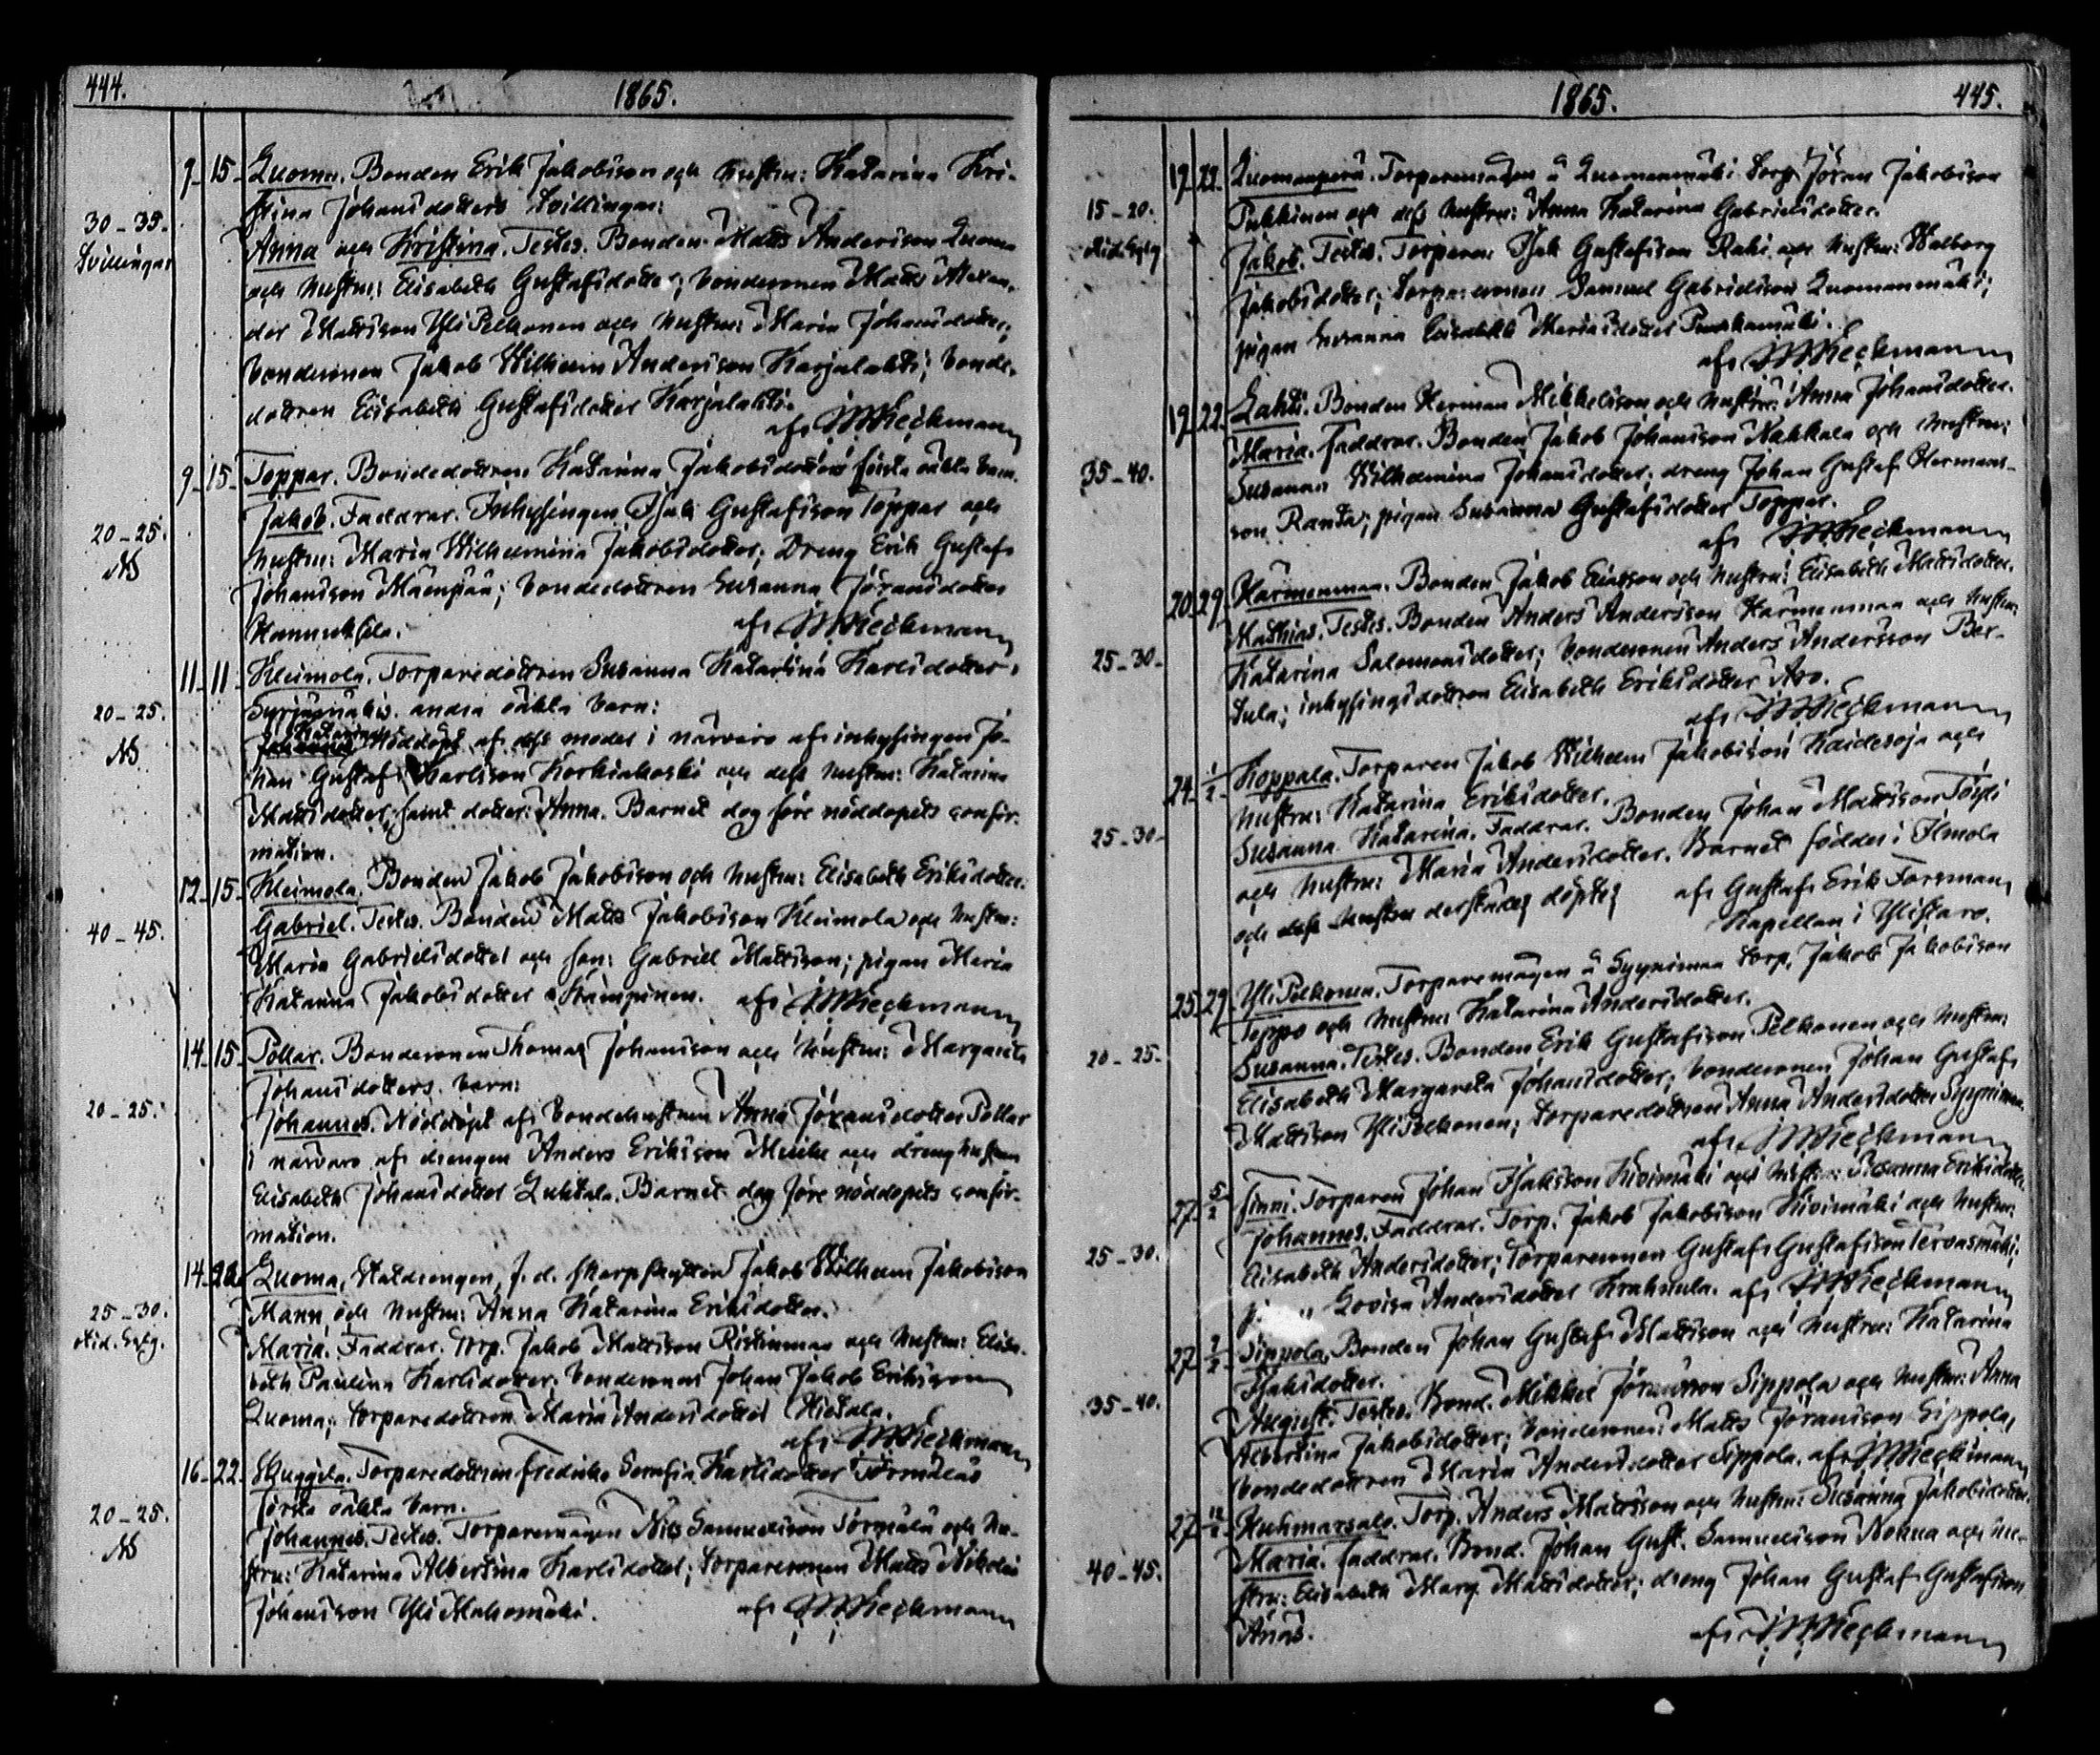 444.
1865.
9 15 Luoma. Bonden Erik Jakobsson och hustru: Katarina Kri-
stina Johansdotters tvillingar:
30-35. Tvillingar
Anna och Kristina. Testes. Bonden Matts Andersson Luoma
och hustru: Elisabeth Gustafsdotter; bondesonen Matts Alexan-
der Mattsson YliPelkonen och hustru: Maria Johansdotter;
bondesonen Jakob Wilhelm Andersson Karjalahti; bonde-
dottren Elisabeth Gustafsdotter Karjalahti.
af
9 15 Toppar. Bondedottren Katarina Jakobsdotters första oäkta barn.
Jakob. Faddrar. Inhysingen Isak Gustafsson Toppar och
20-25.
hustru: Maria Wilhelmina Jakobsdotter; Dreng Erik Gustaf
Johansson Mäenpää; bondedottren Susanna Jöransdotter
Hannuksela.
af
11 11 Kleimola. Torparedottren Susanna Katarina Karlsdotter
20-25.
Syrjämäkis andra oäkta barn:
Katarina Nöddöpt af dess moder i närvaro af inhysingen Jo-
han Gustaf Karlsson Korkiakoski och dess hustru: Katarina
Mattsdotter samt dotter: Anna. Barnet dog före nöddopets confir-
mation.
12 15 Kleimola. Bonden Jakob Jakobsson och hustru: Elisabeth Eriksdotter.
40-45.
Gabriel. Testes. Bonden Matts Jakobsson Kleimola och hustru:
Maria Gabrielsdotter och son: Gabriel Mattsson; pigan Maria
Katarina Jakobsdotter Kämpinen. af
14 15 Pollar. Bondesonen Thomas Johansson och hustru: Margareta
Johansdotters barn:
20-25.
Johannes. Nöddöpt af bondehustrun Anna Jöransdotter Pollar
i närvaro af drengen Anders Eriksson och drenghustrun
Elisabeth Johansdotter Luhtala. Barnet dog före nöddopets confir-
mation.
14 22 Luoma, Statdrengen, f.d. skarpskytten Jakob Wilhelm Jakobsson
25-30.
Mann, och hustru: Anna Katarina Eriksdotter.
Maria. Faddrar. Torp. Jakob Mattsson Ristimaa och hustru: Elisa-
beth Paulina Karlsdotter; bondesonen Johan Jakob Eriksson
Luoma; torparedottren Maria Andersdotter Hietala.
af
16 22 Skuggila. Torparedottren Fredrika Serafia Karlsdotter Törmäläs
första oäkta barn.
20-25.
Johannes. Testes. Torparemågen Nils Samuelsson Törmälä och hu-
stru: Katarina Albertina Karlsdotter; torparesonen Matts Nikolai
Johansson Yli
af
1865.
445.
19 22 Luomanperä. Torparemågen å Luomanmäki torp Jöran Jakobsson
15-20.
Pukkinen och dess hustru: Anna Katarina Gabrielsdotter.
Jakob. Testes. Torparen: Isak Gustafsson Rahi och hustru: Walborg
Jakobsdotter; torparesonen Samuel Gabrielsson Luomanmäki;
pigan Susanna Elisabeth Mariasdotter
af
19 22 Lahti. Bonden Herman Mikkelsson och hustru: Anna Johansdotter.
Maria. Faddrar. Bonden Jakob Johansson Nahkala och hustru:
35-40.
Susanna Wilhelmina Johansdotter; dreng Johan Gustaf Hermans-
son Ranta; pigan Susanna Gustafsdotter Toppar.
af
20 29 Harmenmaa. Bonden Jakob Eliasson och hustru: Elisabeth Mattsdotter.
Mathias. Testes. Bonden Anders Andersson Harmenmaa och hustru:
25-30
Katarina Salomonsdotter; bondesonen Anders Andersson Ber-
tula; inhysingsdottren Elisabeth Eriksdotter Aro.
af
24 1/2 Koppala. Torparen Jakob Wilhelm Jakobsson Kaidesoja och
hustru: Katarina Eriksdotter.
25-30
Susanna Katarina. Faddrar. Bonden Johan Mattsson
och hustru: Maria Andersdotter. Barnet föddes i Ilmola
och derstädes döptes af Gustaf Erik Forsman,
Kapellan i Ylistaro.
25 29 YliPelkonen. Torparemågen å Syynimaa torp, Jakob Jakobsson
Seppo och hustru: Katarina Andersdotter.
20-25.
Susanna. Testes. Bonden Erik Gustafsson Pelkonen och hustru:
Elisabeth Margareta Johansdotter; bondesonen Johan Gustaf
Mattsson YliPelkonen; torparedottren Anna Andersdotter Syynimaa.
af
27 5/2 Finni. Torparen Johan Isaksson Kivimäki och hustru: Susanna Eriksdotter.
Johannes. Faddrar. Torp. Jakob Jakobsson Kivimäki och hustru:
25-30.
Elisabeth Andersdotter; torparesonen Gustaf Gustafsson Tervasmäki;
Lovisa Andersdotter af
27 Sippola. Bonden Johan Gustaf Mattsson och hustru: Katarina
Isaksdotter.
35-40.
August. Testes. Bond. Mikkel Jöransson Sippola och hustru: Anna
Albertina Jakobsdotter; bondesonen: Matts Jöransson Sippola,
bondedottren Maria Andersdotter Sippola. af
27 12/2 Kuhmasalo. Torp. Anders Mattsson och hustru: Susanna Jakobsdotter.
Maria. Faddrar. Bond. Johan Gust. Samuelsson Nokua och hu-
40-45.
stru: Elisabeth Marg. Mattsdotter; dreng Johan Gustaf Gustafsson
Anäs.
af